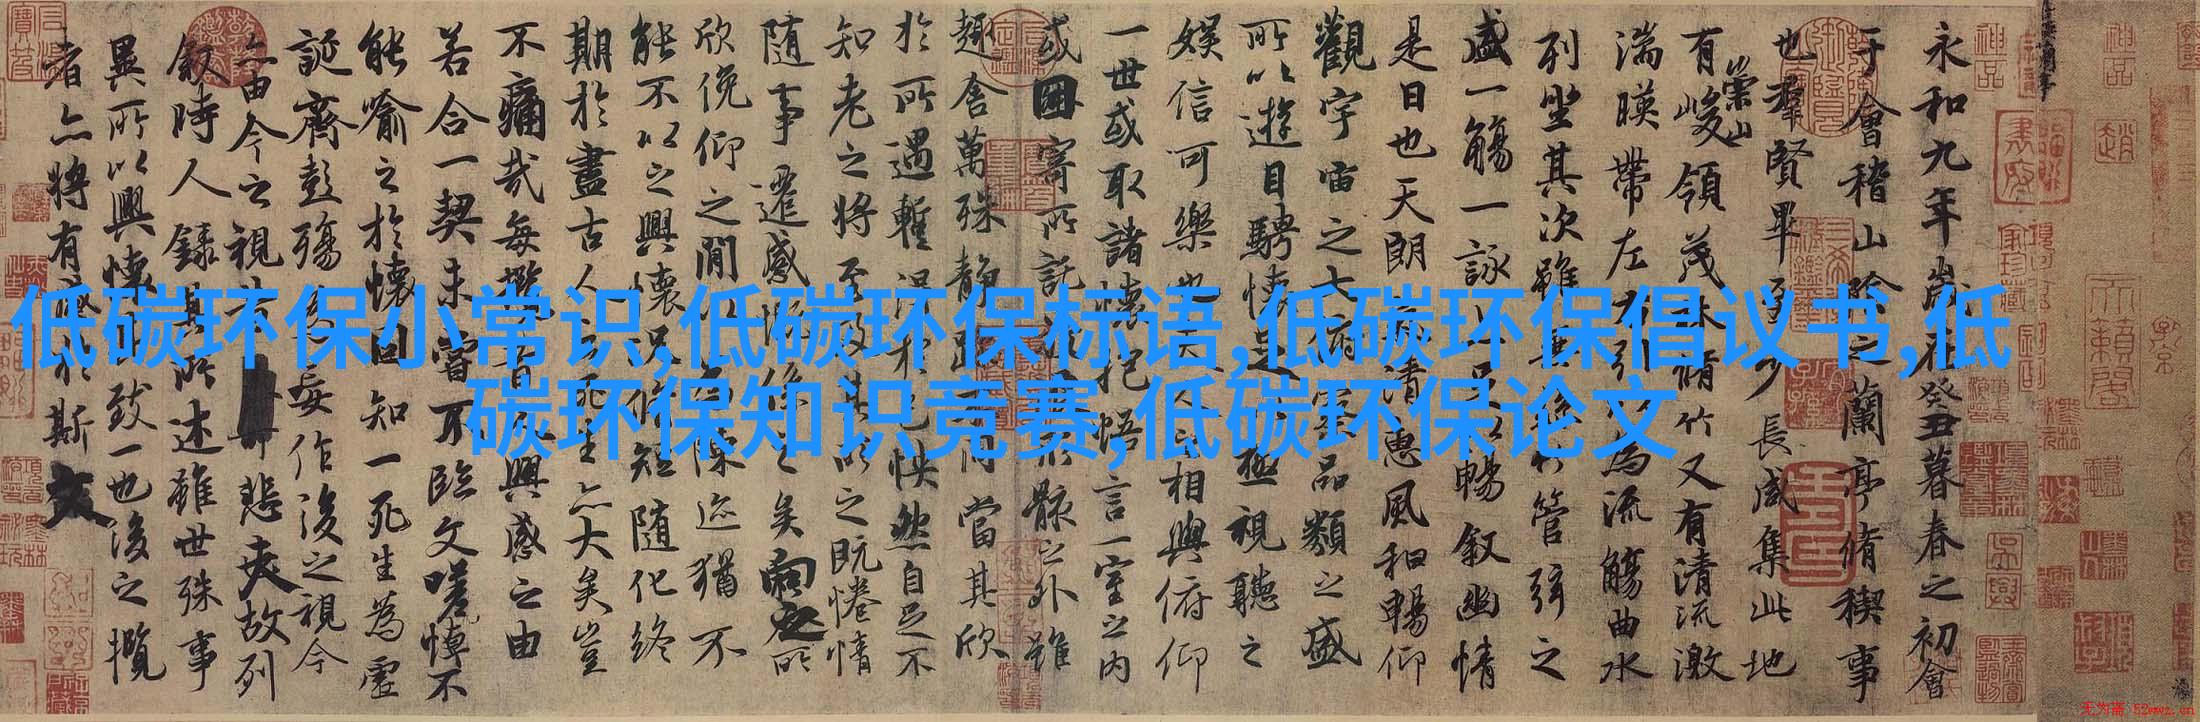 低碳环保小常识,低碳环保标语,低碳环保倡议书,低
碳环保知识竞赛,低碳环保论文
永和九年歲在癸丑暮春之初會
于會稽山陰之蘭亭脩稧事
也羣賢畢至少長咸集此地
有崇山峻領茂林脩竹又有清流激
湍暎帶左右引以為流觴曲水
列坐其次雖無絲竹管弦之
盛一觴一詠亦足以暢叙幽情
是日也天朗氣清惠風和暢仰
觀宇宙之大俯察品類之盛
所以遊目騁懷足以極視聽之
娛信可樂也夫人之相與俯仰
一世或取諸懷抱悟言一室之內
或因寄所託放浪形骸之外雖
趣舍萬殊靜躁不同當其欣
於所遇暫得於己快然自足不
知老之將至及其所之既惓情
隨事遷感慨係之矣向之所
欣俛仰之閒以為陳迹猶不
能不以之興懷況脩短隨化終
期於盡古人云死生亦大矣豈
不痛哉每攬昔人興感之由
若合一契未嘗不臨文嗟悼不
能喻之於懷固知一死生為虛
誕齊彭殤為妄作後之視今
亦由今之視昔悲夫故列
叙時人錄其所述雖世殊事
異所以興懷其致一也後之攬
者亦將有感於斯文
无为斋 52wwz.cn